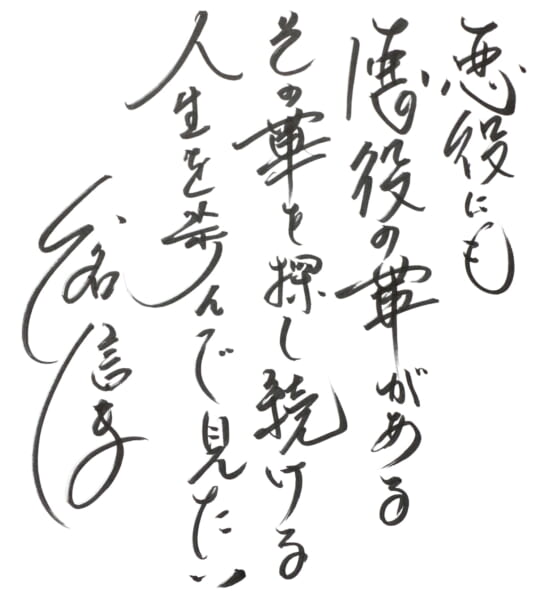 悪役にも
悪役の華がある
その華を探し続ける
人生を歩んで見たい
八名信夫